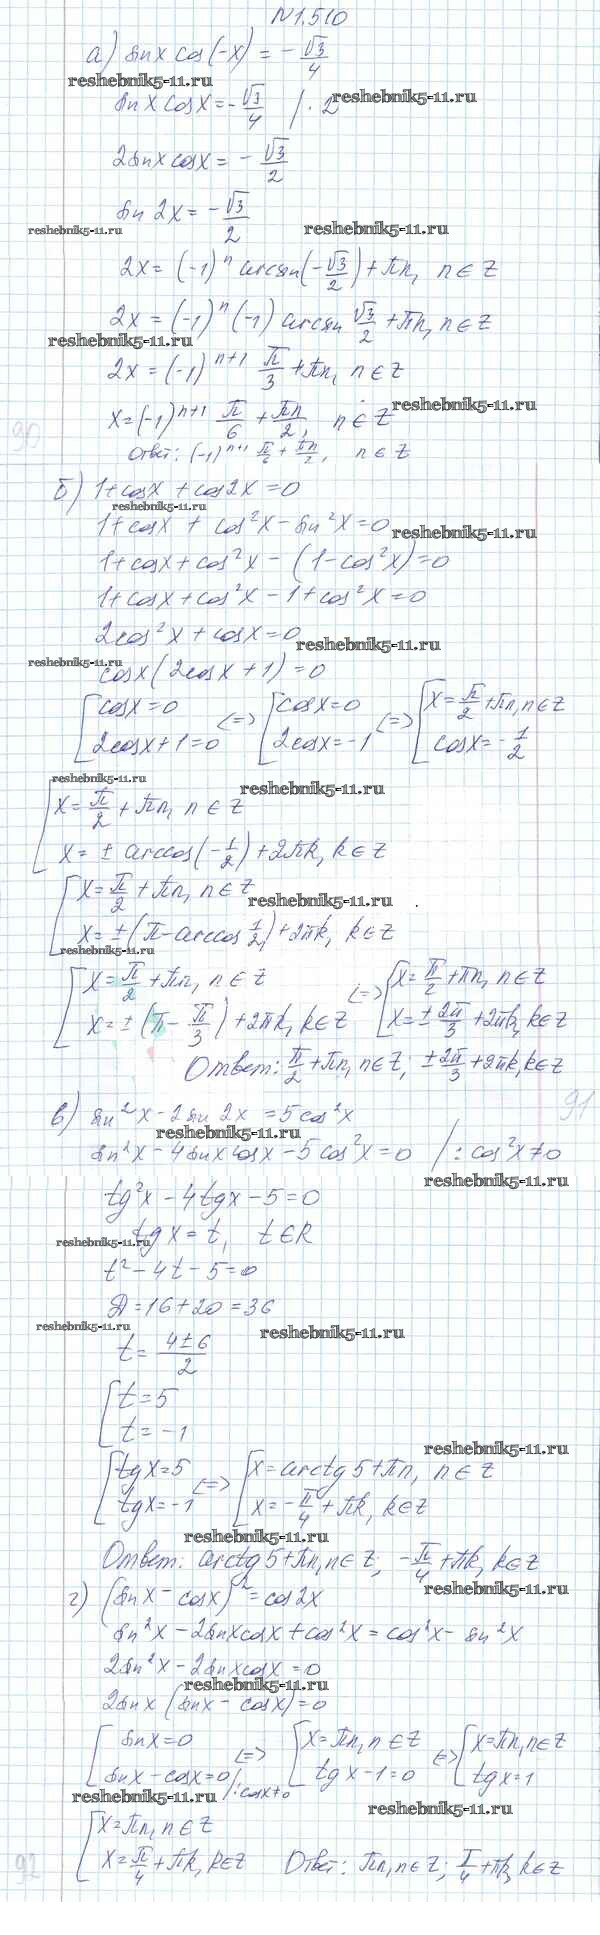 N1.510
а) sin x cos(-x) = -√3/4
reshebnik5-11.ru
sin x cos x = -√3/4 | · 2
reshebnik5-11.ru
2 sin x cos x = -√3/2
sin 2x = -√3/2
reshebnik5-11.ru
reshebnik5-11.ru
2x = (-1)^n arcsin(-√3/2) + πn, n ∈ Z
2x = (-1)^n (-1) arcsin √3/2 + πn, n ∈ Z
reshebnik5-11.ru
2x = (-1)^(n+1) π/3 + πn, n ∈ Z
reshebnik5-11.ru
x = (-1)^(n+1) π/6 + πn/2, n ∈ Z
Ответ: (-1)^(n+1) π/6 + πn/2, n ∈ Z
90
б) 1 + cos x + cos 2x = 0
reshebnik5-11.ru
1 + cos x + cos²x - sin²x = 0
reshebnik5-11.ru
1 + cos x + cos²x - (1 - cos²x) = 0
1 + cos x + cos²x - 1 + cos²x = 0
2cos²x + cos x = 0
reshebnik5-11.ru
reshebnik5-11.ru
cos x (2cos x + 1) = 0
[ cos x = 0 <=> [ cos x = 0 <=> [ x = π/2 + πn, n ∈ Z
2cos x + 1 = 0 2cos x = -1 cos x = -1/2
reshebnik5-11.ru
reshebnik5-11.ru
[ x = π/2 + πn, n ∈ Z
x = ± arccos(-1/2) + 2πk, k ∈ Z
[ x = π/2 + πn, n ∈ Z
reshebnik5-11.ru
x = ±(π - arccos 1/2) + 2πk, k ∈ Z
reshebnik5-11.ru
[ x = π/2 + πn, n ∈ Z <=> [ x = π/2 + πn, n ∈ Z
x = ±(π - π/3) + 2πk, k ∈ Z x = ± 2π/3 + 2πk, k ∈ Z
Ответ: π/2 + πn, n ∈ Z; ± 2π/3 + 2πk, k ∈ Z
91
в) sin²x - 2 sin 2x = 5cos²x
reshebnik5-11.ru
sin²x - 4 sin x cos x - 5cos²x = 0 | : cos²x ≠ 0
reshebnik5-11.ru
tg²x - 4tg x - 5 = 0
tg x = t, t ∈ R
reshebnik5-11.ru
t² - 4t - 5 = 0
D = 16 + 20 = 36
reshebnik5-11.ru
reshebnik5-11.ru
t = (4 ± 6)/2
[ t = 5
t = -1
reshebnik5-11.ru
[ tg x = 5 <=> [ x = arctg 5 + πn, n ∈ Z
tg x = -1 x = -π/4 + πk, k ∈ Z
reshebnik5-11.ru
Ответ: arctg 5 + πn, n ∈ Z; -π/4 + πk, k ∈ Z
reshebnik5-11.ru
г) (sin x - cos x)² = cos 2x
sin²x - 2 sin x cos x + cos²x = cos²x - sin²x
2 sin²x - 2 sin x cos x = 0
reshebnik5-11.ru
2 sin x (sin x - cos x) = 0
[ sin x = 0 <=> [ x = πn, n ∈ Z <=> [ x = πn, n ∈ Z
sin x - cos x = 0 | : cos x ≠ 0 tg x - 1 = 0 tg x = 1
reshebnik5-11.ru
reshebnik5-11.ru
[ x = πn, n ∈ Z
x = π/4 + πk, k ∈ Z Ответ: πn, n ∈ Z; π/4 + πk, k ∈ Z
92